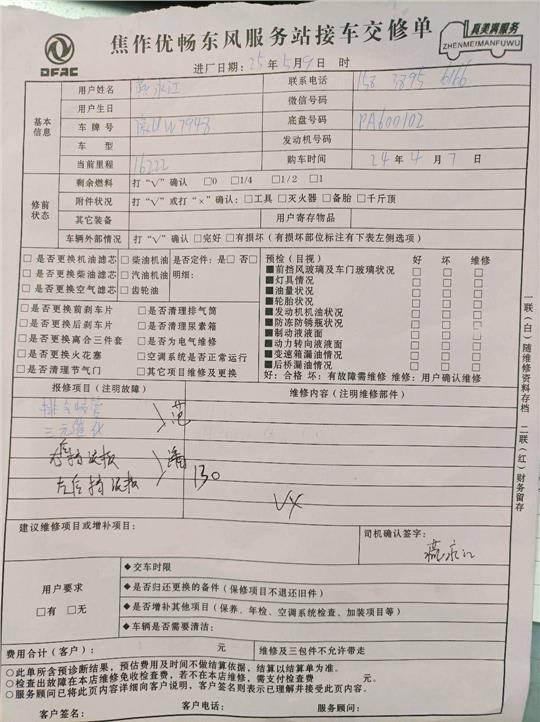 DFAC
焦作优畅东风服务站接车交修单
真美满服务
ZHENMEIMANFUWU
进厂日期：25年5月9日 时
基本信息
用户姓名 燕永江 联系电话 158 3895 6166
用户生日 微信号码
车牌号 豫HW7948 底盘号码 PA600102
车型 发动机号码
当前里程 16222 购车时间 24年4月7日
修前状态
剩余燃料 打“√”确认 □0 □1/4 □1/2 □1
附件状况 打“√”或打“×”确认：□工具 □灭火器 □备胎 □千斤顶
其它装备 用户寄存物品
车辆外部情况 打“√”确认 □完好 □有损坏（有损坏部位标注有下表左侧选项）
□是否更换机油滤芯 □柴油机油 是否定件：是□ 否□
□是否更换柴油滤芯 □汽油机油 明细：
□是否更换空气滤芯 □齿轮油
□是否更换前刹车片 □是否清理排气筒
□是否更换后刹车片 □是否清理尿素箱
□是否更换离合三件套 □是否为电气维修
□是否更换火花塞 □空调系统是否正常运行
□是否清理节气门 □其它项目维修及更换
预检（目视） 好 坏 维修
■前挡风玻璃及车门玻璃状况 □ □ □
■灯具情况 □ □ □
■油量状况 □ □ □
■轮胎状况 □ □ □
■发动机机油状况 □ □ □
■防冻防锈瓶状况 □ □ □
■制动液液面 □ □ □
■动力转向液液面 □ □ □
■变速箱漏油情况 □ □ □
■后桥漏油情况 □ □ □
好：合格 坏：有故障需维修 维修：用户确认维修
报修项目（注明故障） 维修内容（注明维修部件）
三元催化
130
VX
建议维修项目或增补项目：
司机确认签字：
燕永江
用户要求
□有 □无
◆交车时限
◆是否归还更换的备件（保修项目不退还旧件）
◆是否增补其他项目（保养、年检、空调系统检查、加装项目等）
◆车辆是否需要清洁：
费用合计（客户）： 元 维修及三包件不允许带走
○此单所含预诊断结果，预估费用及时间不做结算依据，结算以结算单为准。
○检查出故障在本店维修免收检查费，若不在本店维修，需支付检查费 元。
○服务顾问已将此页内容详细向客户说明，客户签名则表示已理解并接受此页内容。
客户签名： 客户电话： 服务顾问：
一联（白）随维修资料存档 二联（红）财务留存